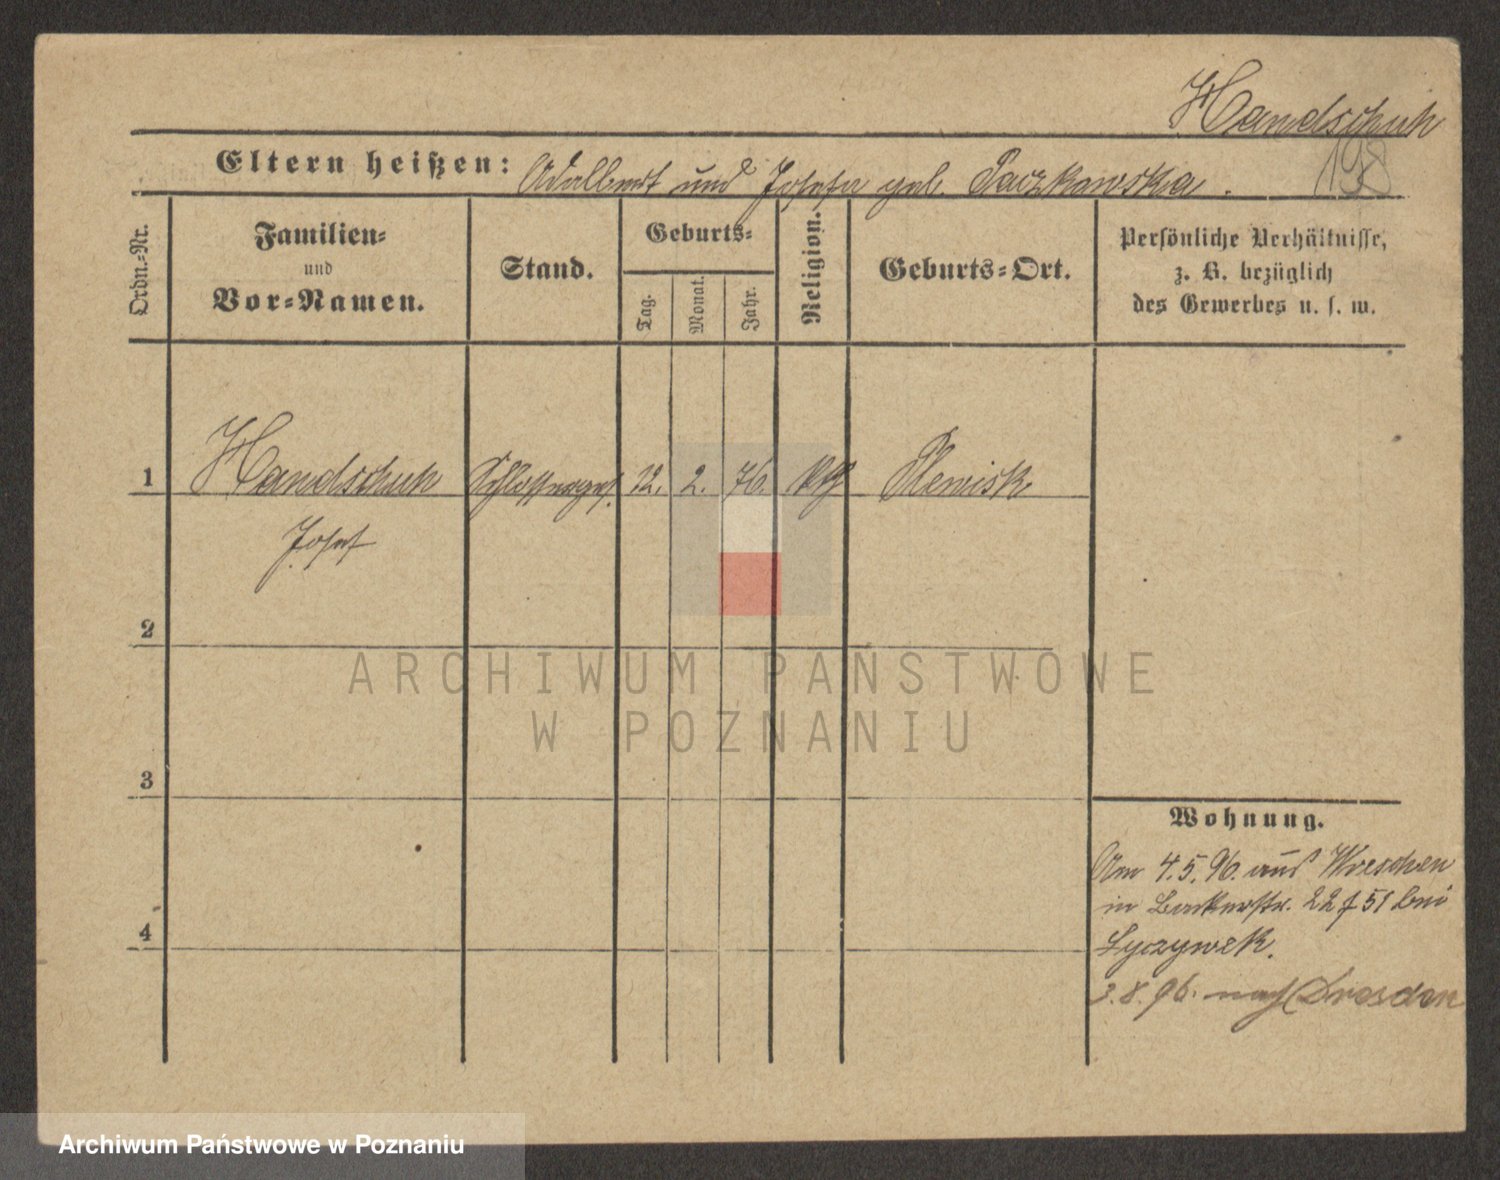 Handschuh
198
Eltern heißen: Adalbert und Josefa geb. Paczkowska.
Ordn.-Nr.
Familien-
und
Vor-Namen.
Stand.
Geburts-
Tag.
Monat.
Jahr.
Religion.
Geburts-Ort.
Persönliche Verhältnisse,
z. B. bezüglich
des Gewerbes u. s. w.
1 Handschuh Schlosserges. 12. 2. 76. kth Plewisk
Josef
2
3
4
ARCHIWUM PAŃSTWOWE
W POZNANIU
Wohnung.
Am 4.5.96. aus Wreschen
in Bäckerstr. 22 f 51 bei
Lyczywek.
3.8.96. nach Dresden
Archiwum Państwowe w Poznaniu